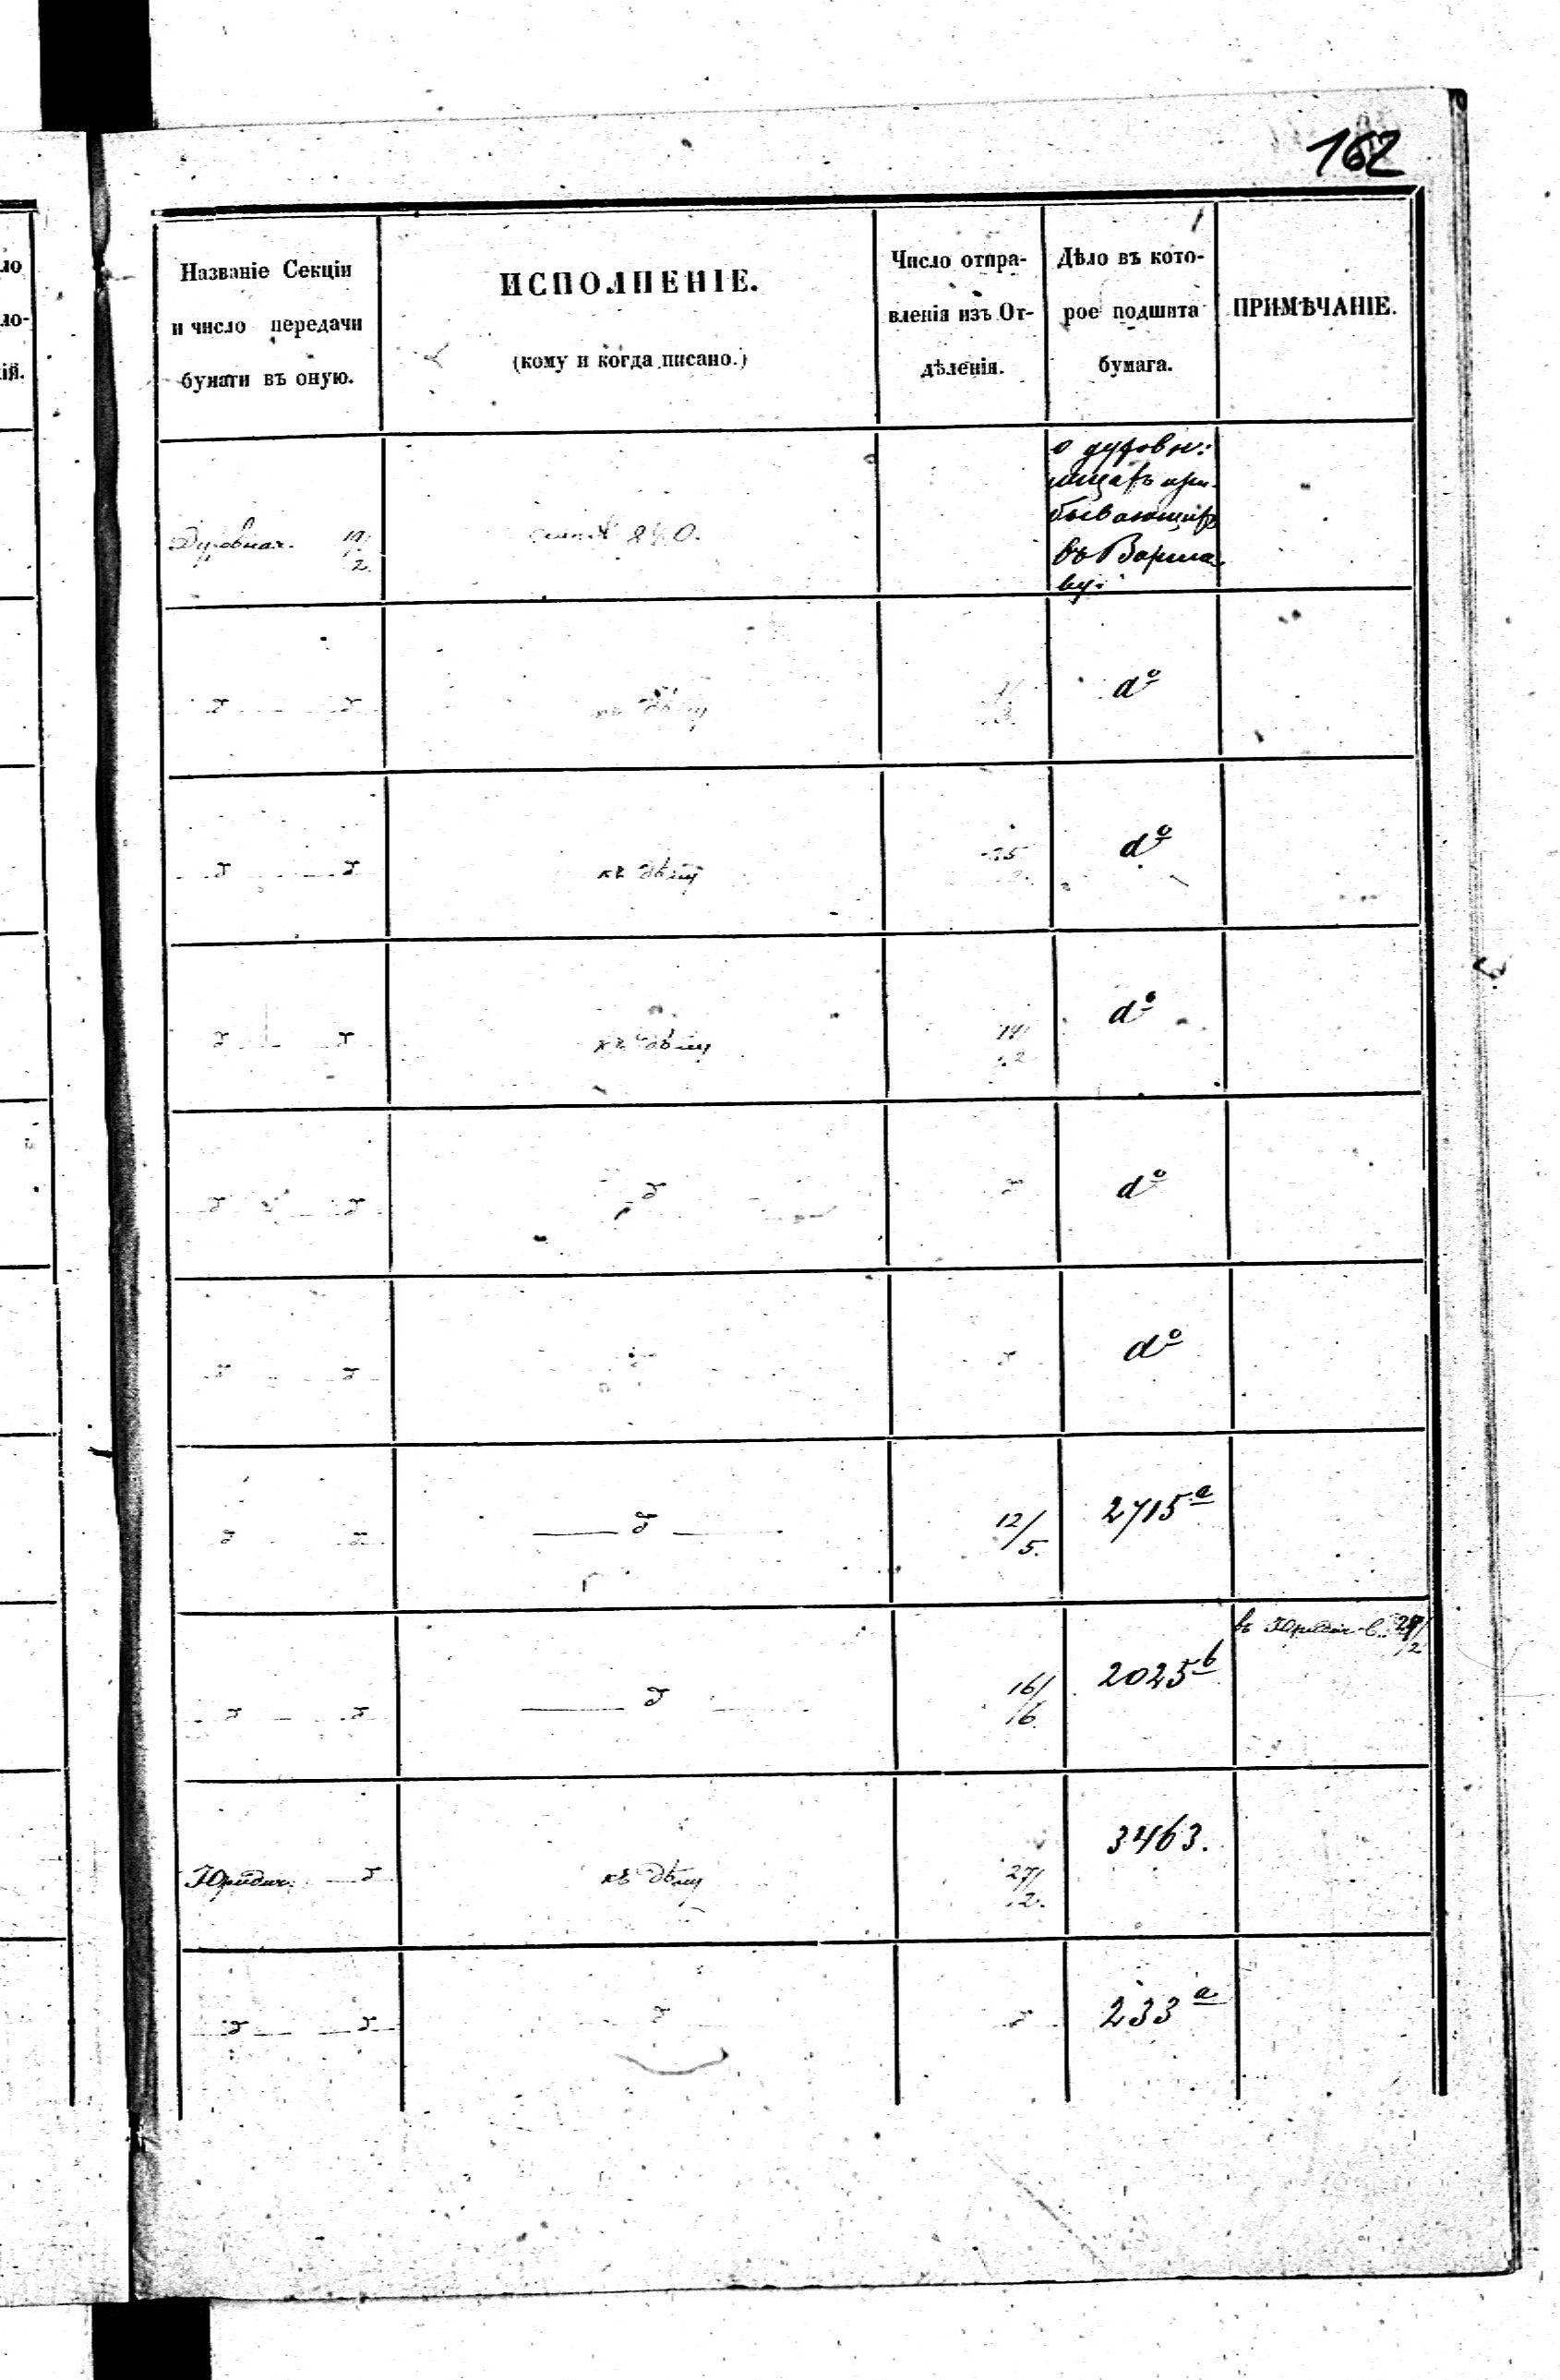 162
Названіе Секціи
и число передачи
бумаги въ оную.
ИСПОЛНЕНІЕ.
(кому и когда писано.)
Число отпра-
вленія изъ От-
дѣленія.
Дѣло въ кото-
рое подшита
бумага.
ПРИМѢЧАНІЕ.
Духовная. 19/2.
о духовн:
лицахъ при-
бывающихъ
въ Варша-
ву.
къ дѣлу
dº
къ дѣлу
dº
къ дѣлу 19/2
dº
dº
dº
12/5. 2715ª
16/6 2025b
въ Юридич.
Юридич. къ дѣлу 27/2. 3463.
233ª